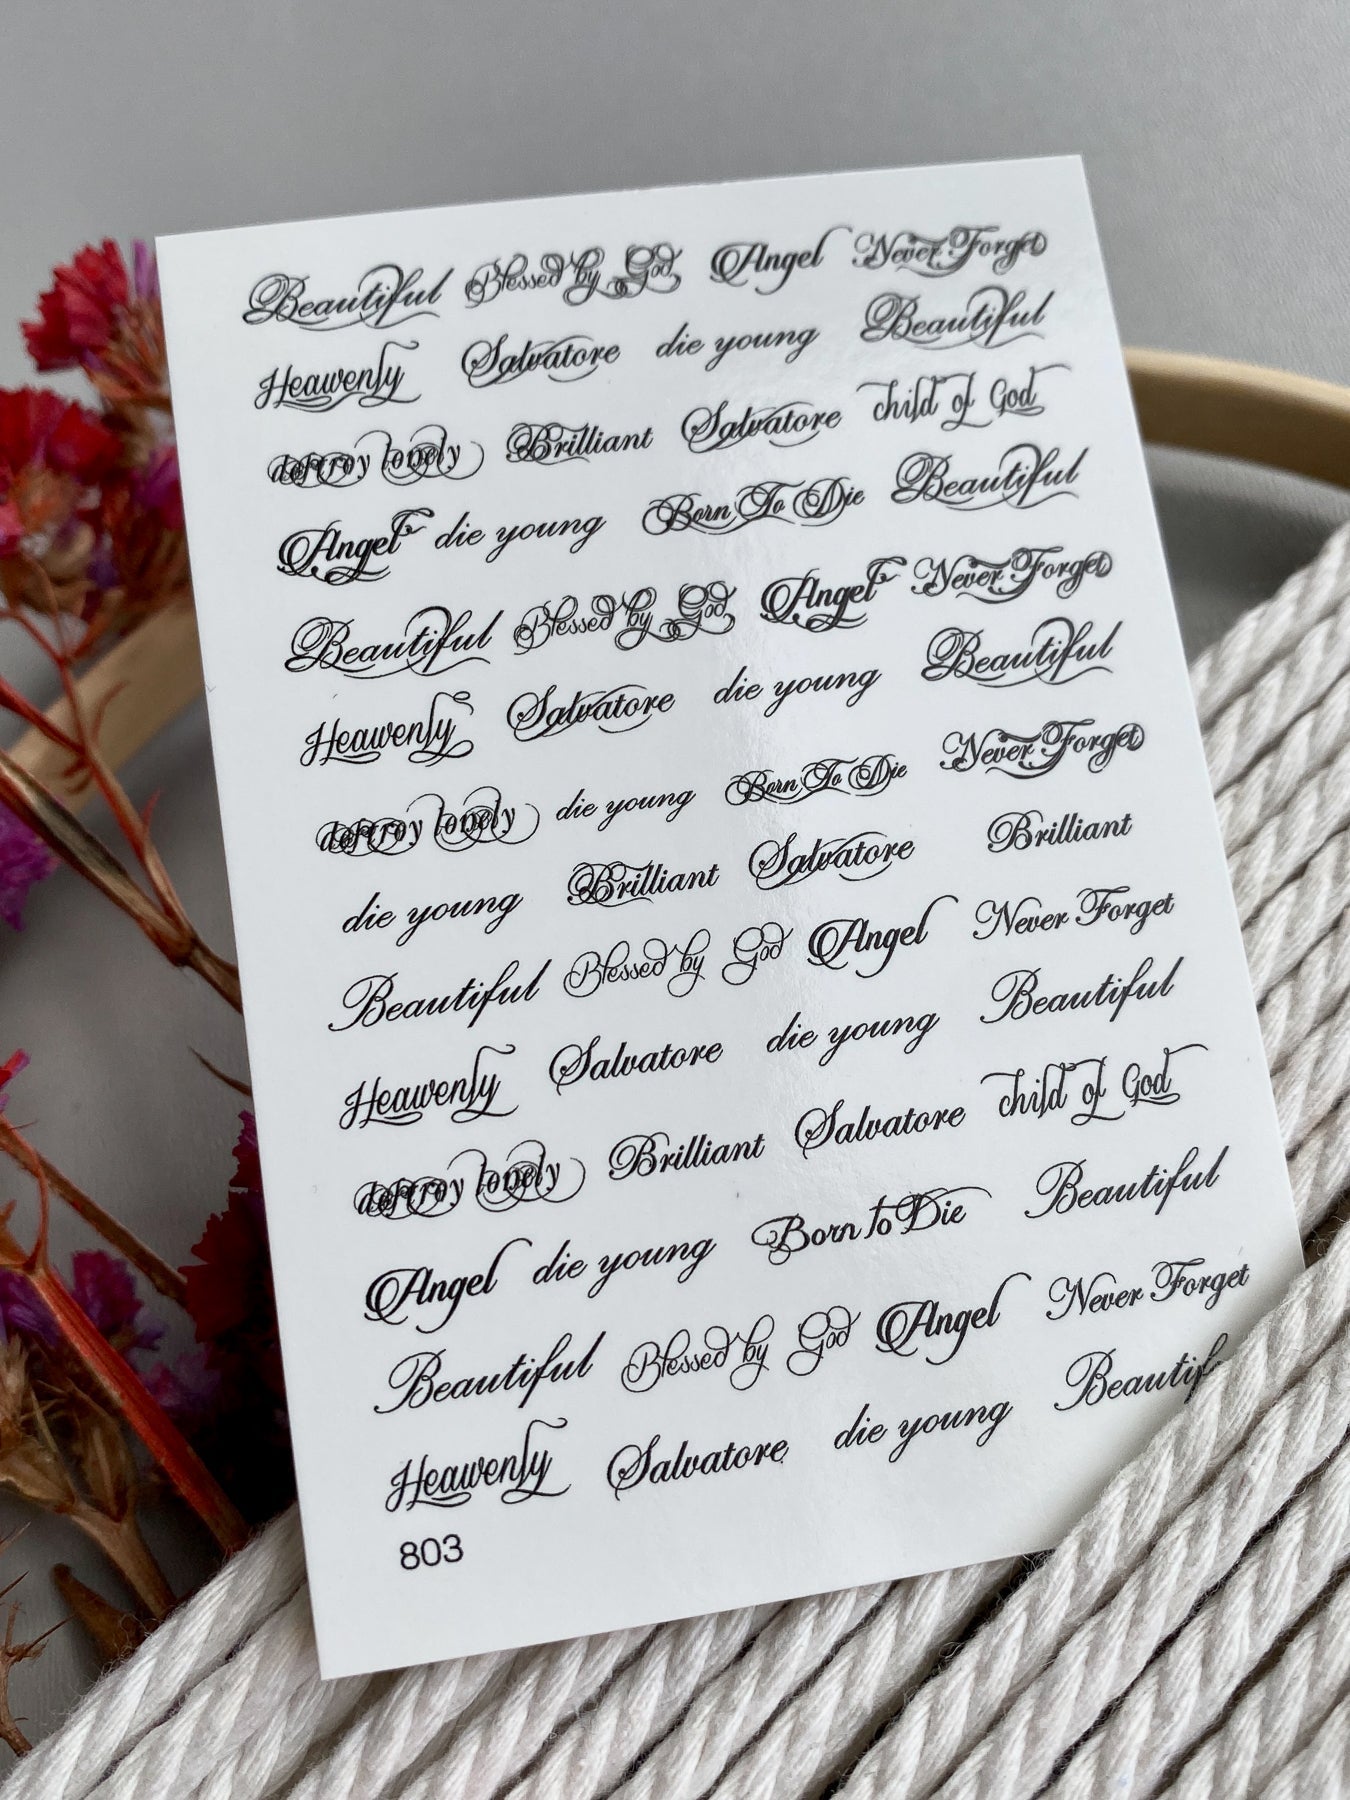 Beautiful Blessed by God Angel Never Forget
Heavenly Salvatore die young Beautiful
destroy lonely Brilliant Salvatore child of God
Angel die young Born To Die Beautiful
Beautiful Blessed by God Angel Never Forget
Heavenly Salvatore die young Beautiful
destroy lonely die young Born To Die Never Forget
die young Brilliant Salvatore Brilliant
Beautiful Blessed by God Angel Never Forget
Heavenly Salvatore die young Beautiful
destroy lonely Brilliant Salvatore child of God
Angel die young Born to Die Beautiful
Beautiful Blessed by God Angel Never Forget
Heavenly Salvatore die young Beautif
803